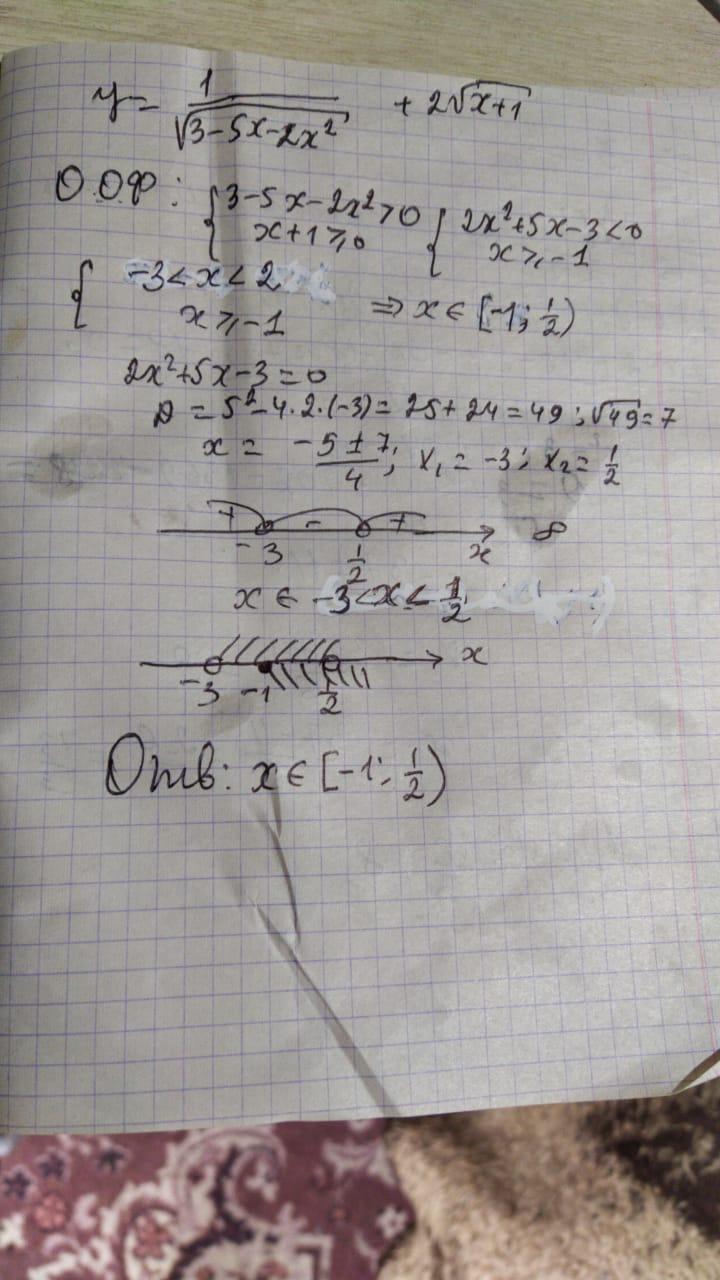 y = 1/√(3-5x-2x²) + 2√(x+1)
О.О.Ф: { 3-5x-2x²>0 { 2x²+5x-3<0
x+1⩾0 x⩾-1
{ -3<x<2
x⩾-1 ⇒ x∈[-1; 1/2)
2x²+5x-3=0
D = 5²-4·2·(-3) = 25+24=49; √49=7
x = (-5±7)/4; x₁ = -3; x₂ = 1/2
+ - +
-3 1/2 x
x ∈ -3<x< 1/2
x
-3 -1 1/2
Отв: x∈[-1; 1/2)